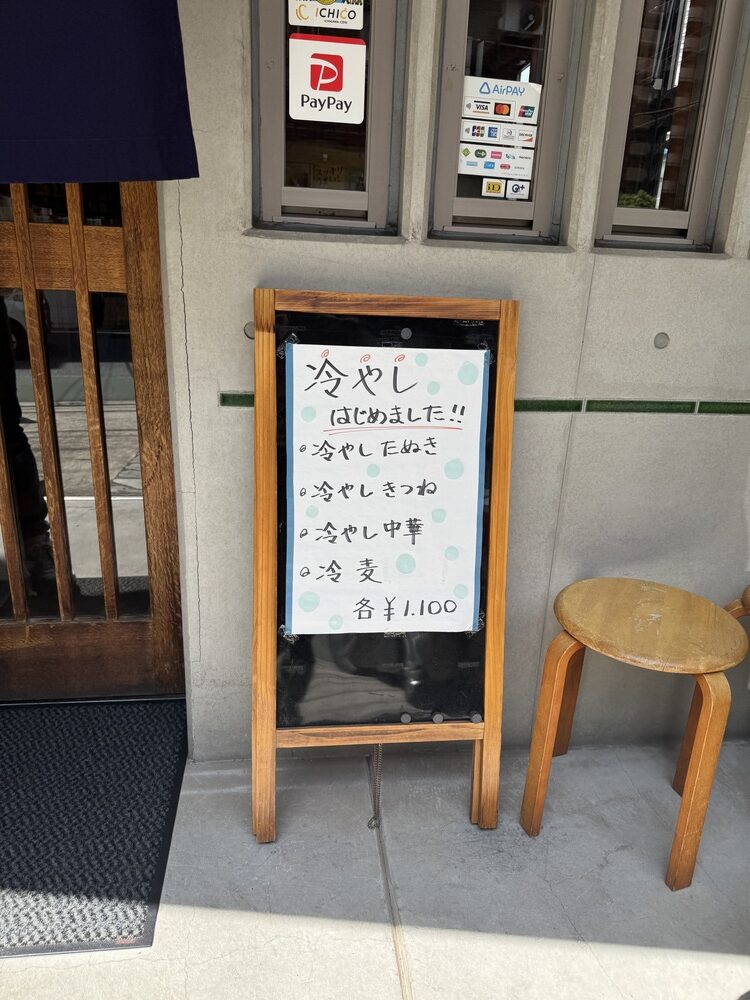 ICHICO
PayPay
AirPAY
VISA
iD
冷やし
はじめました!!
冷やしたぬき
冷やしきつね
冷やし中華
冷麦
各¥1.100